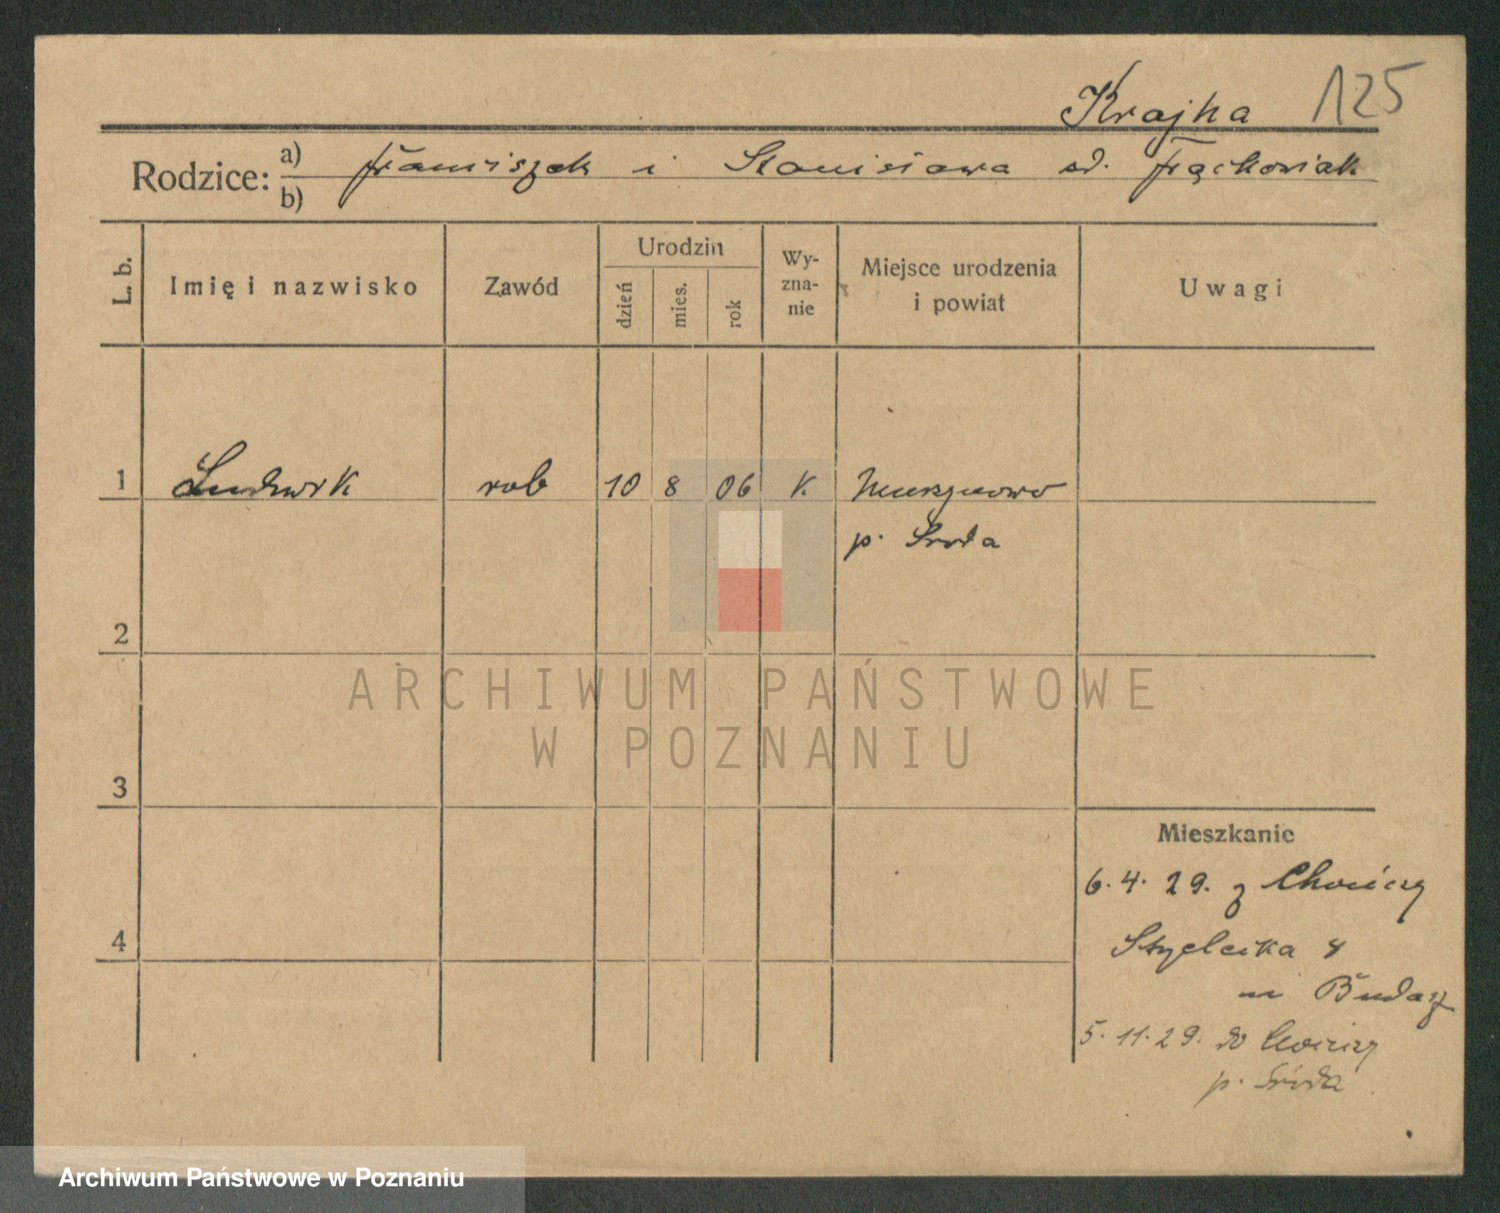 Krajna 125
Rodzice: a) Franciszek i Stanisława
b)
L. b.
Imię i nazwisko
Zawód
Urodzin
dzień
mies.
rok
Wy-
zna-
nie
Miejsce urodzenia
i powiat
Uwagi
1 Ludwik rob 10 8 06 k
p. Środa
2
3
4
Mieszkanie
6. 4. 29. z
Strzelecka 8
5. 11. 29. do
p. Środa
ARCHIWUM PAŃSTWOWE
W POZNANIU
Archiwum Państwowe w Poznaniu